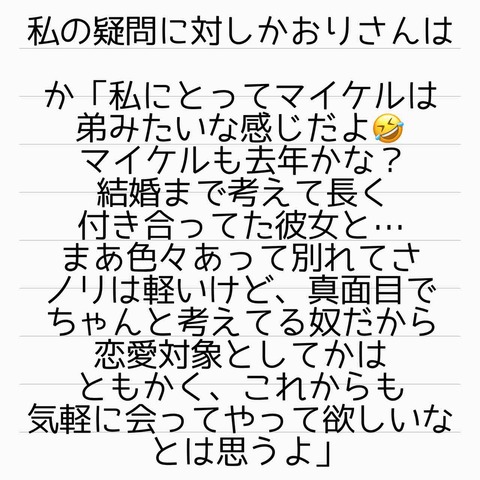 私の疑問に対しかおりさんは
か「私にとってマイケルは
弟みたいな感じだよ🤣
マイケルも去年かな？
結婚まで考えて長く
付き合ってた彼女と…
まあ色々あって別れてさ
ノリは軽いけど、真面目で
ちゃんと考えてる奴だから
恋愛対象としてかは
ともかく、これからも
気軽に会ってやって欲しいな
とは思うよ」